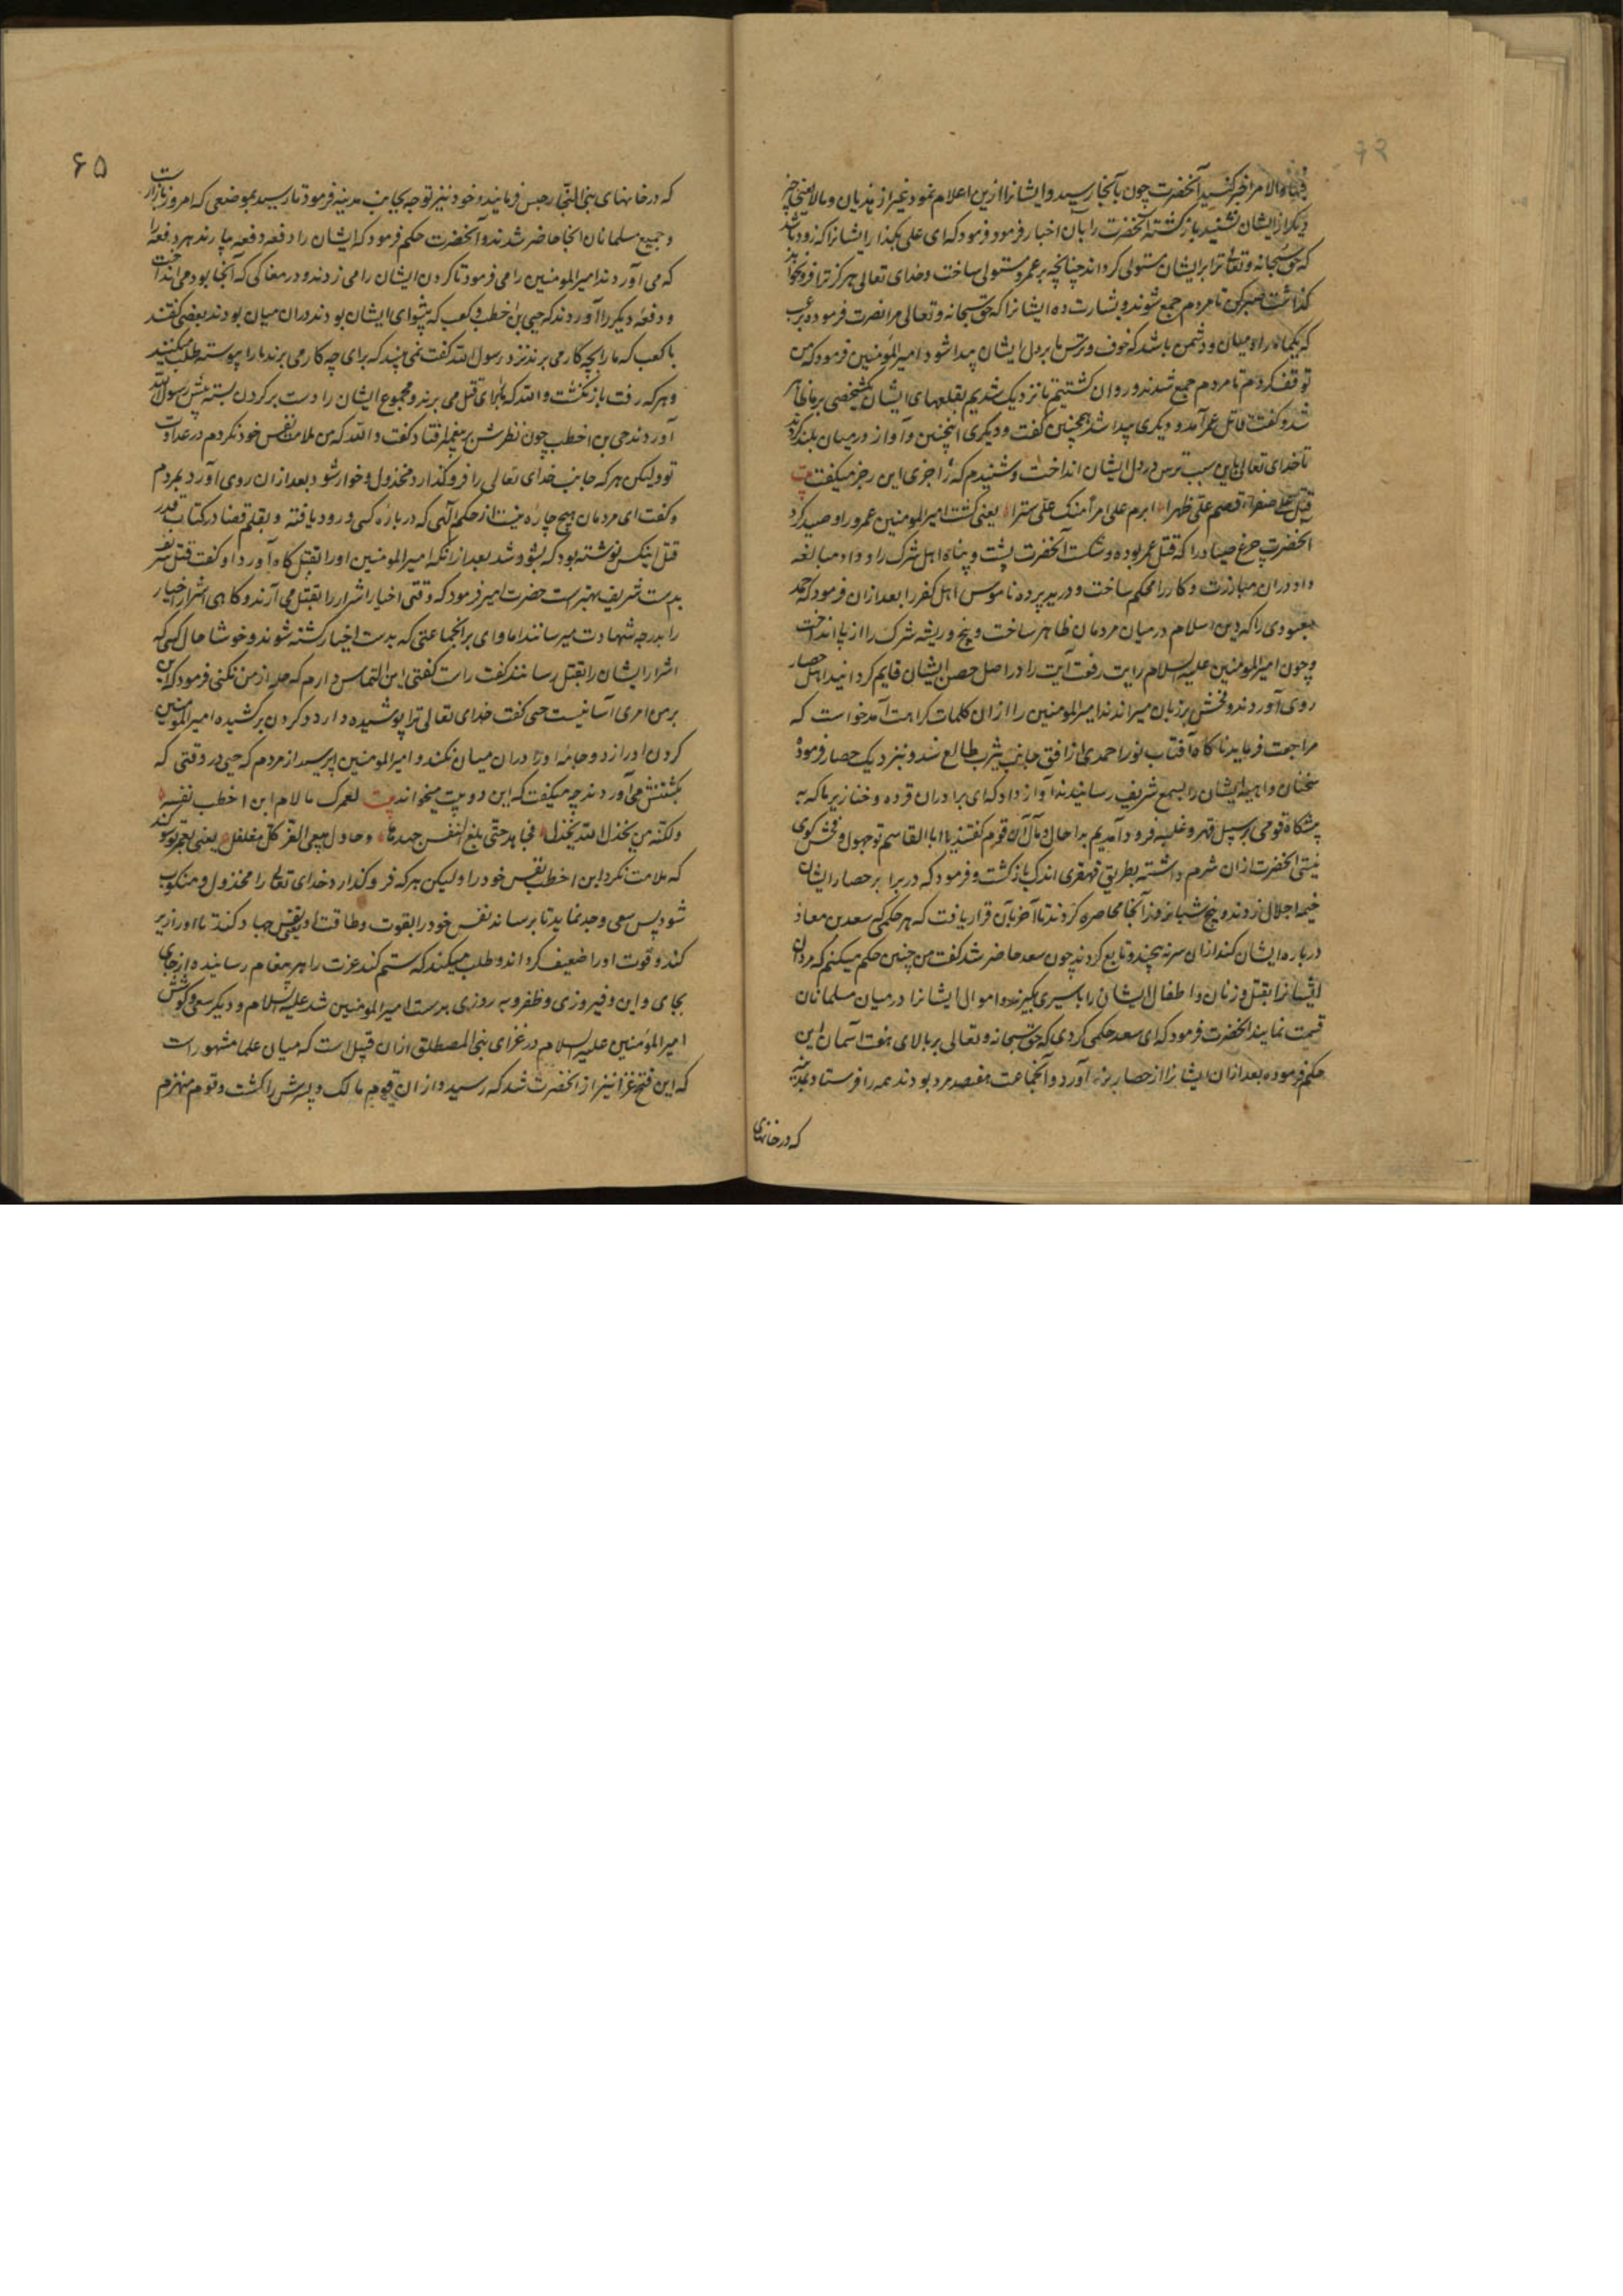 آنحضرت چون بآنجا رسید و ایشانرا ازین اعلام نمود غیر از هذیان و مالایعنی چیز
دیگر از ایشان نشنید بازگشته آنحضرت را بآن اخبار فرمود فرمود که ای علی بگذار ایشانرا که زود باشد
که حق سبحانه و تعالی ترا بر ایشان مستولی گرداند چنانچه بر عمرو مستولی ساخت و خدای تعالی هرگز ترا فرو نخواهد
گذاشت صبر کن تا مردم جمع شوند و بشارت ده ایشانرا که حق سبحانه و تعالی مرا نصرت فرموده برعب
که یکماهه راه میان و دشمن باشد که خوف و ترس ما بر دل ایشان پیدا شود امیرالمؤمنین فرمود که من
توقف کردم تا مردم جمع شدند و روان گشتیم تا نزدیک شدیم بقلعهای ایشان شخصی بر ما ظاهر
شد و گفت قاتل عمر آمد و دیگری پیدا شد همچنین گفت و دیگری اینچنین و آواز در میان بلند کردند
تا خدای تعالی باین سبب ترس در دل ایشان انداخت و شنیدم که راجزی این رجز میگفت بیت
قتل علی عمرا قصم علی ظهرا ابرم علی امرا هتک علی سترا یعنی کشت امیرالمومنین عمرو را و صید کرد
آنحضرت چرغ صیاد را که قتل عمر بوده و شکست آنحضرت پشت و پناه اهل شرک را و داد مبالغه
داد در آن مبارزت و کار را محکم ساخت و درید پرده ناموس اهل کفر را بعد از آن فرمود که حمد
معبودی را که دین اسلام در میان مردمان ظاهر ساخت و بیخ و ریشه شرک را از پا انداخت
و چون امیرالمومنین علیه السلام رایت رفعت آیت را در اصل حصن ایشان قایم گردانید اهل حصار
روی آوردند و فحش بر زبان میراندند امیرالمومنین را از آن کلمات کراهت آمد خواست که
مراجعت فرماید ناگاه آفتاب نور احمدی از افق جانب یثرب طالع شد و بنزدیک حصار فرمود
سخنان واهیه ایشان را بسمع شریف رسانیدند آواز داد که ای برادران قرده و خنازیر ما که به
قومی بر سبیل قهر و غلبه فرود آمدیم بدا حال و مآل آن قوم گفتند یا ابا القاسم تو جهول و فحش گوی
نیستی آنحضرت از آن شرم داشته بطریق قهقری اندک بازگشت و فرمود که در برابر حصار ایشان
خیمه اجلال زدند و پنج شبانروز آنجا محاصره کردند تا آخر بآن قرار یافت که هر حکمی که سعد بن معاذ
درباره ایشان کند از آن سر نپیچند و تابع گردند چون سعد حاضر شد گفت من چنین حکم میکنم که مردان
ایشانرا بقتل و زنان و اطفال ایشان را باسیری بگیرند و اموال ایشانرا در میان مسلمانان
قسمت نمایند آنحضرت فرمود که ای سعد حکمی کردی که حق سبحانه و تعالی بر بالای هفت آسمان این
حکم فرموده بعد از آن ایشانرا از حصار بزیر آورد و آنجماعت هفتصد مرد بودند همه را فرستاد بمدینه
که در خانهای
۶۵
که در خانهای بنی النجار حبس فرمایند و خود نیز توجه بجانب مدینه فرمود تا رسید بموضعی که امروز بازارست
و جمیع مسلمانان آنجا حاضر شدند و آنحضرت حکم فرمود که ایشان را دفعه دفعه بیارند هر دفعه را
که می آوردند امیرالمومنین را می فرمود تا گردن ایشان را می زدند و در مغاکی که آنجا بود می انداخت
و دفعه دیگر را آوردند که حیی بن اخطب و کعب که پیشوای ایشان بودند در آن میان بودند بعضی گفتند
با کعب که ما را بچه کار می برند نزد رسول الله گفت نمی بینید که برای چه کار می برند ما را پیوسته طلب میکنند
و هر که رفت بازنگشت و الله که ما را برای قتل می برند و مجموع ایشان را دست بر گردن بسته پیش رسول الله
آوردند حیی بن اخطب چون نظرش بر پیغمبر افتاد گفت و الله که من ملامت نفس خود نکردم در عداوت
تو و لیکن هر که جانب خدای تعالی را فرو گذارد مخذول و خوار شود بعد از آن روی آورد بمردم
و گفت ای مردمان هیچ چاره نیست از حکم الهی که درباره کسی ورود یافته و بقلم قضا در کتاب قدر
قتل اینکس نوشته بود که بشود شد بعد از آنکه امیرالمومنین او را بقتل گاه آورد او گفت قتل شریف
بدست شریف بهتر است حضرت امیر فرمود که وقتی اخیار اشرار را بقتل می آرند و گاهی اشرار اخیار
را بدرجه شهادت میرسانند اما وای بر آنجماعتی که بدست اخیار کشته شوند و خوشا حال کسی که
اشرار ایشان را بقتل رسانند گفت راست گفتی این التماس دارم که حله از من نکنی فرمود که این
بر من امری آسانیست حیی گفت خدای تعالی ترا پوشیده دارد و گردن برکشیده امیرالمومنین
گردن او را زد و جامه او را در آن میان نکند و امیرالمومنین پرسید از مردم که حیی در وقتی که
بکشتنش می آوردند چه میگفت که این دو بیت میخواند بیت لعمرک ما لام ابن اخطب نفسه
ولکنه من یخذل الله یخذل فجاهد حتی بلغ النفس جهدها و حاول یبغی العز کل مغلغل یعنی بعمر تو سوگند
که ملامت نکرد ابن اخطب نفس خود را ولیکن هر که فرو گذارد خدای تعالی را مخذول و منکوب
شود پس سعی و جد نماید تا برساند نفس خود را بقوت و طاقت او بنفس جهاد کند تا او را زیر
کند و قوت او را ضعیف گرداند و طلب میکند که ستم کند عزت را بهر مقام رسانیده از جای
بجای و این و فیروزی و ظفر و به روزی بدست امیرالمومنین شد علیه السلام و دیگر سعی و کوشش
امیرالمؤمنین علیه السلام در غزای بنی المصطلق از آن قبیل است که میان علما مشهور است
که این فتح غزا نیز از آنحضرت شد که رسید و از آن قوم مالک و پسرش را کشت و قوم منهزم